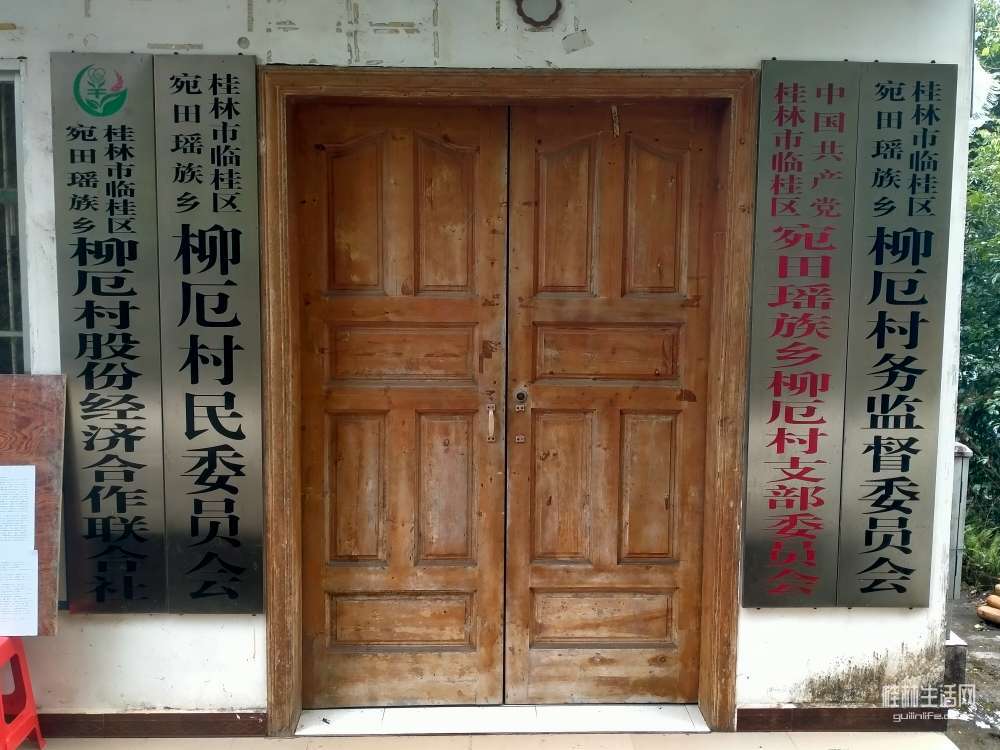 桂林市临桂区
宛田瑶族乡
柳厄村股份经济合作联合社
桂林市临桂区
宛田瑶族乡
柳厄村民委员会
中国共产党
桂林市临桂区
宛田瑶族乡柳厄村支部委员会
桂林市临桂区
宛田瑶族乡
柳厄村务监督委员会
桂林生活网